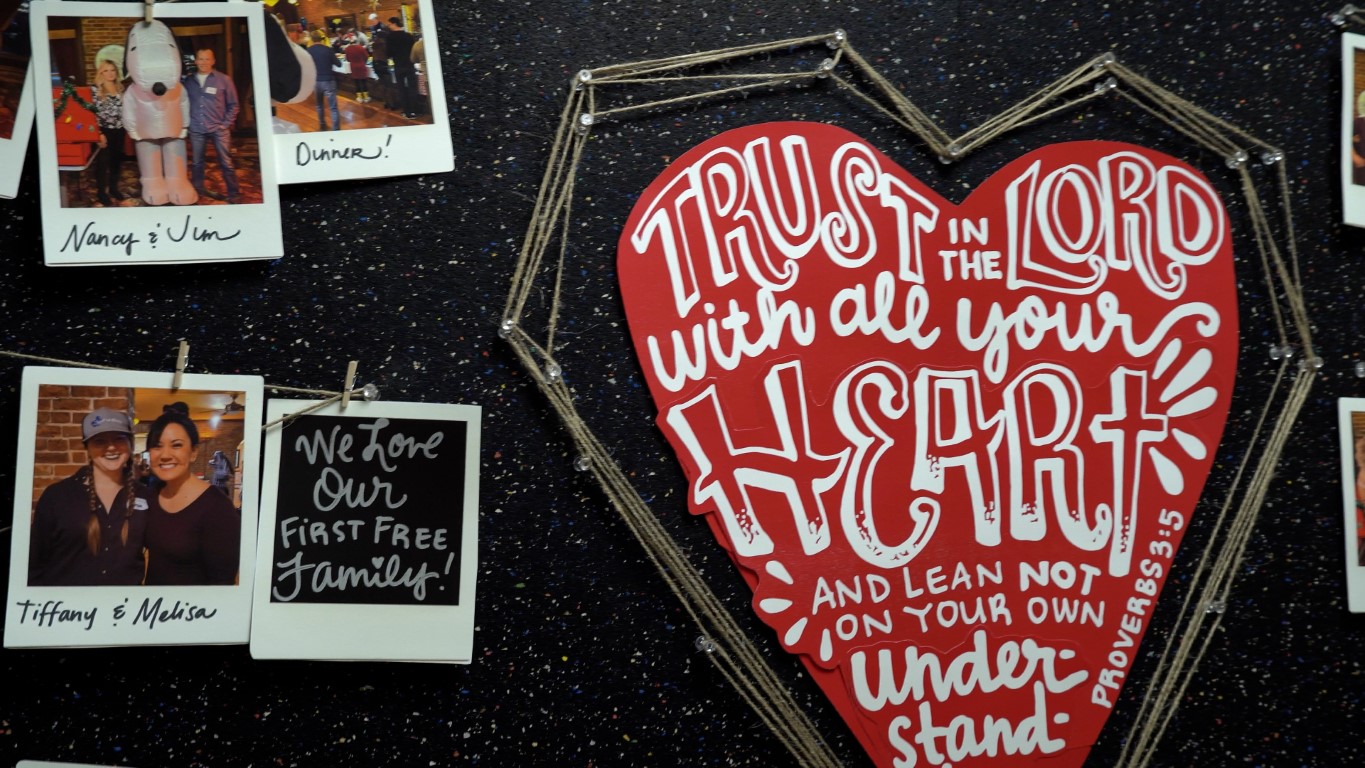 Dinner!
Nancy & Jim
Tiffany & Melisa
We Love
Our
First Free
Family!
TRUST IN
THE LORD
with all your
HEART
AND LEAN NOT
ON YOUR OWN
under-
stand-
PROVERBS 3:5